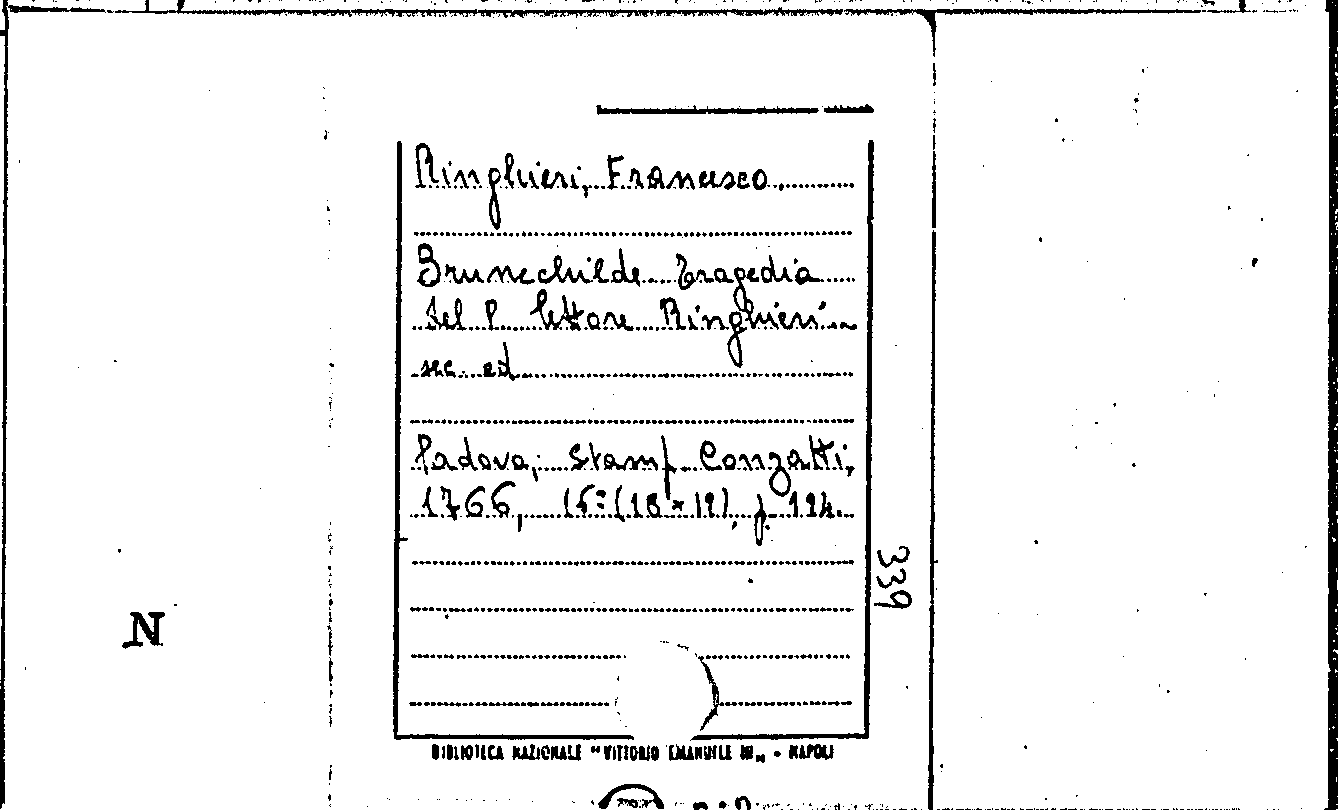 Ringhieri, Francesco.
Brunechilde Tragedia
del P. lettore Ringhieri
sec. ed
Padova, Stamp. Conzatti,
1766, 16° (18 x 12), p. 124.
339
N
BIBLIOTECA NAZIONALE "VITTORIO EMANUELE III„ - NAPOLI